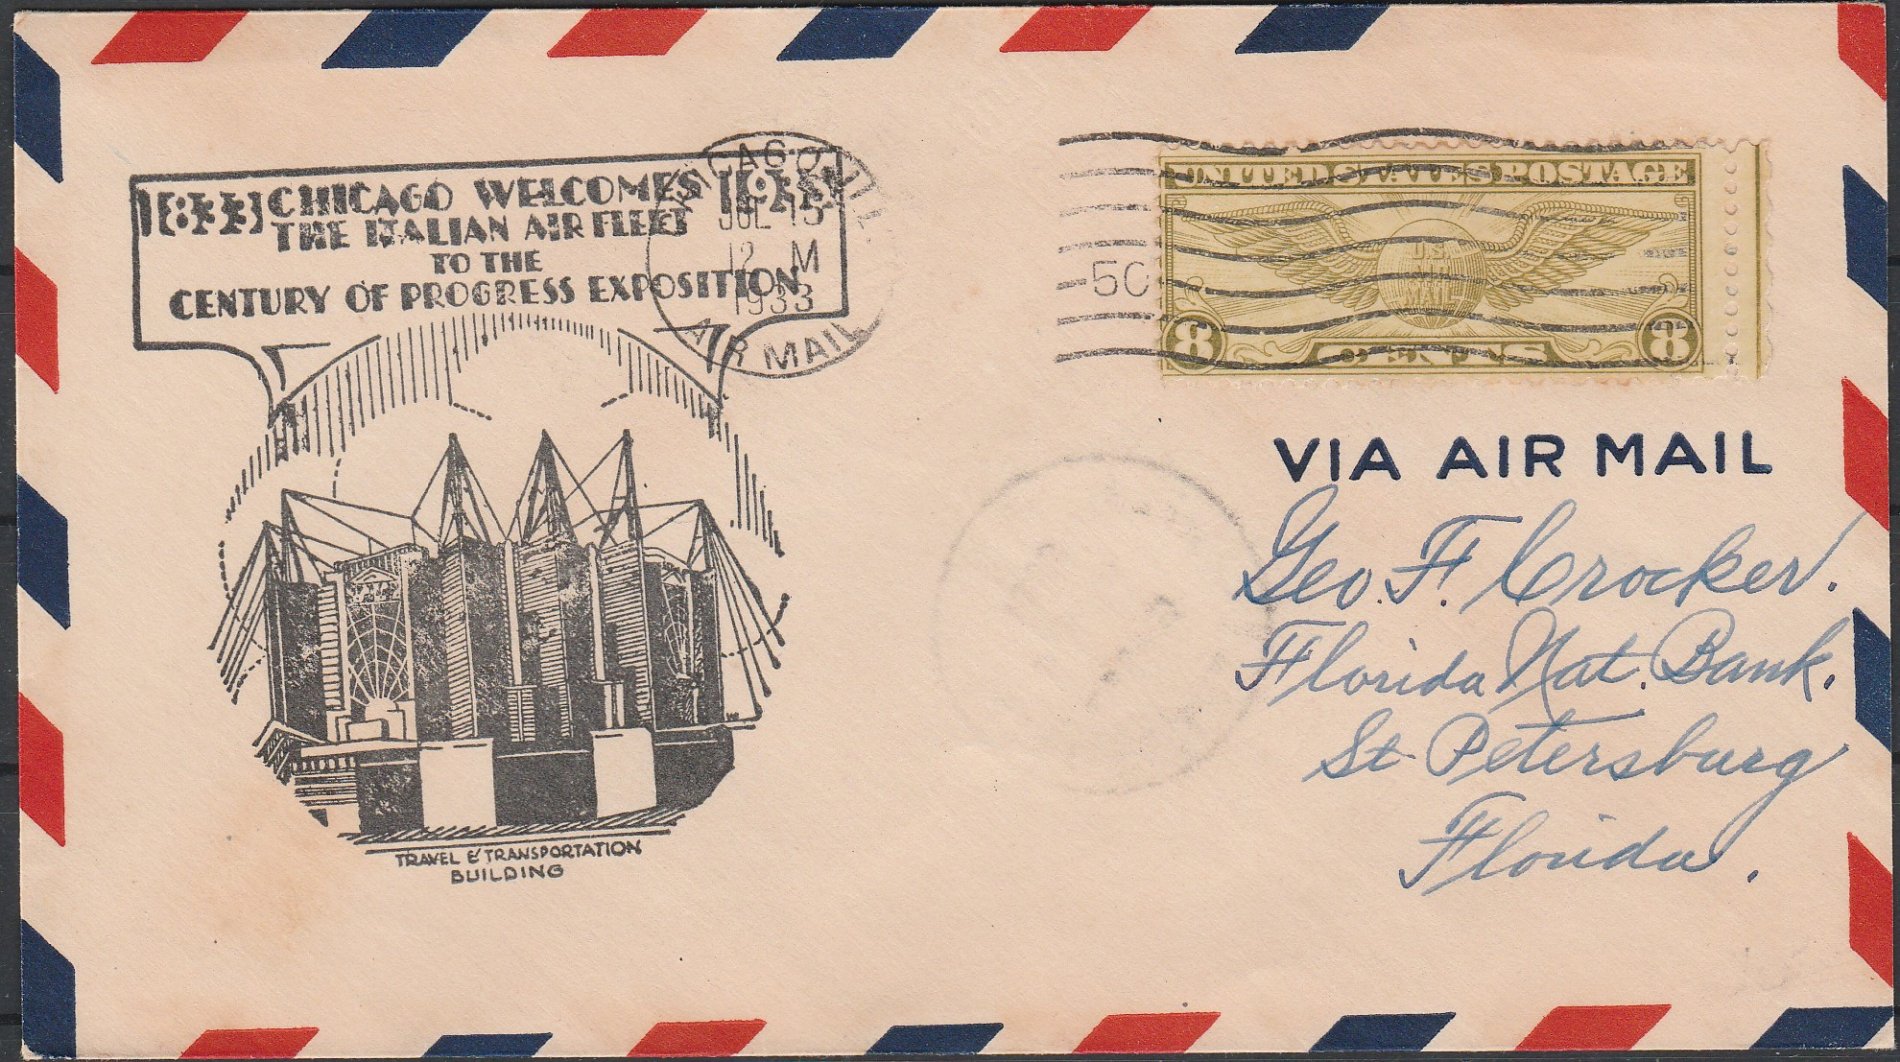 CHICAGO WELCOMES
THE ITALIAN AIR FLEET
TO THE
CENTURY OF PROGRESS EXPOSITION
CHICAGO, ILL.
JUL 15
12 M
1933
AIR MAIL
50
UNITED STATES POSTAGE
U.S.
AIR
MAIL
8 CENTS 8
VIA AIR MAIL
Geo. F. Crocker.
Florida Nat. Bank.
St Petersburg
Florida.
TRAVEL & TRANSPORTATION
BUILDING